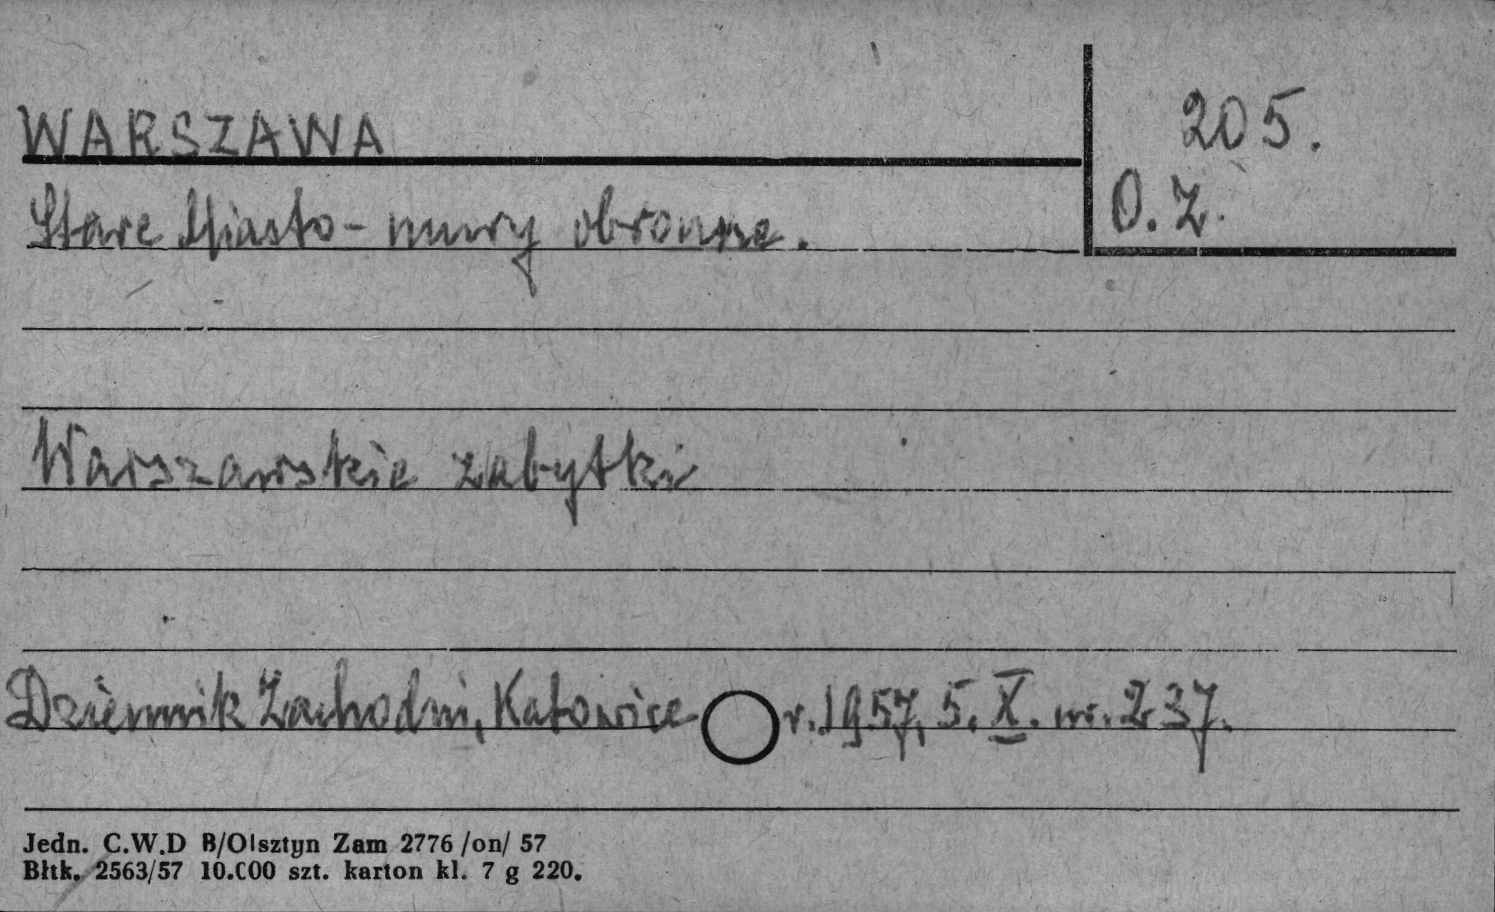 WARSZAWA
205.
O.Z.
Stare Miasto - mury obronne.
Warszawskie zabytki
Dziennik Zachodni, Katowice r. 1957, 5. X. nr. 237.
Jedn. C.W.D B/Olsztyn Zam 2776 /on/ 57
Błtk. 2563/57 10.000 szt. karton kl. 7 g 220.